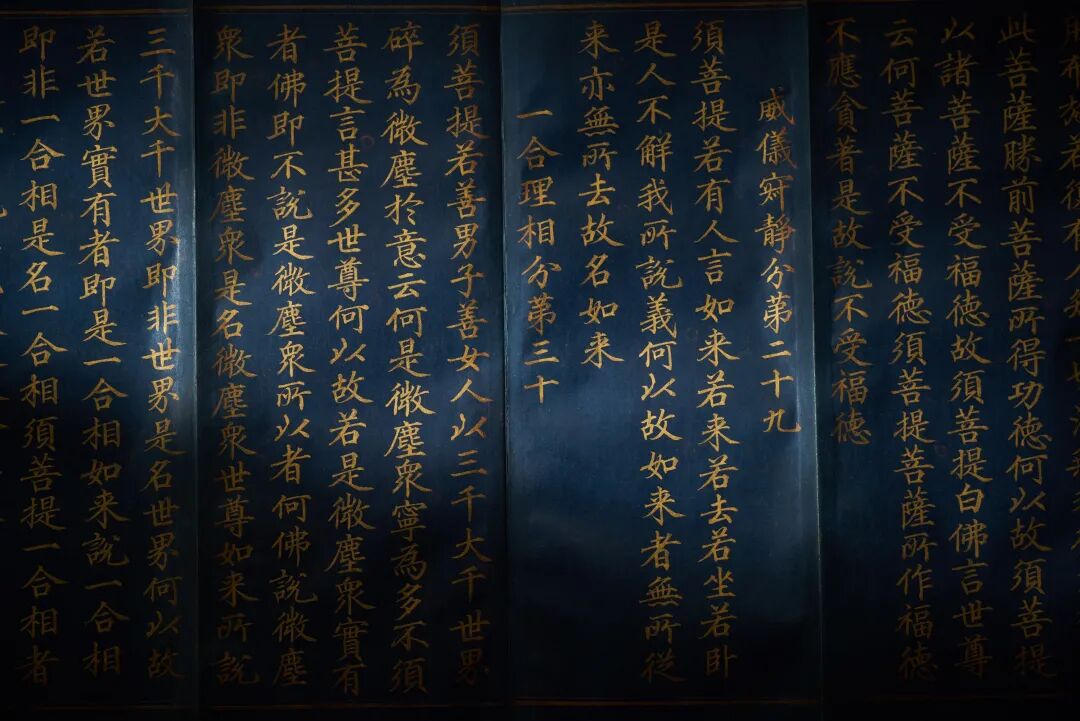 布施若復有人
此菩薩勝前菩薩所得功德何以故須菩提
以諸菩薩不受福德故須菩提白佛言世尊
云何菩薩不受福德須菩提菩薩所作福德
不應貪著是故說不受福德
威儀寂靜分第二十九
須菩提若有人言如来若来若去若坐若卧
是人不解我所說義何以故如来者無所從
来亦無所去故名如来
一合理相分第三十
須菩提若善男子善女人以三千大千世界
碎為微塵於意云何是微塵衆寧為多不須
菩提言甚多世尊何以故若是微塵衆實有
者佛即不說是微塵衆所以者何佛說微塵
衆即非微塵衆是名微塵衆世尊如来所說
三千大千世界即非世界是名世界何以故
若世界實有者即是一合相如来說一合相
即非一合相是名一合相須菩提一合相者